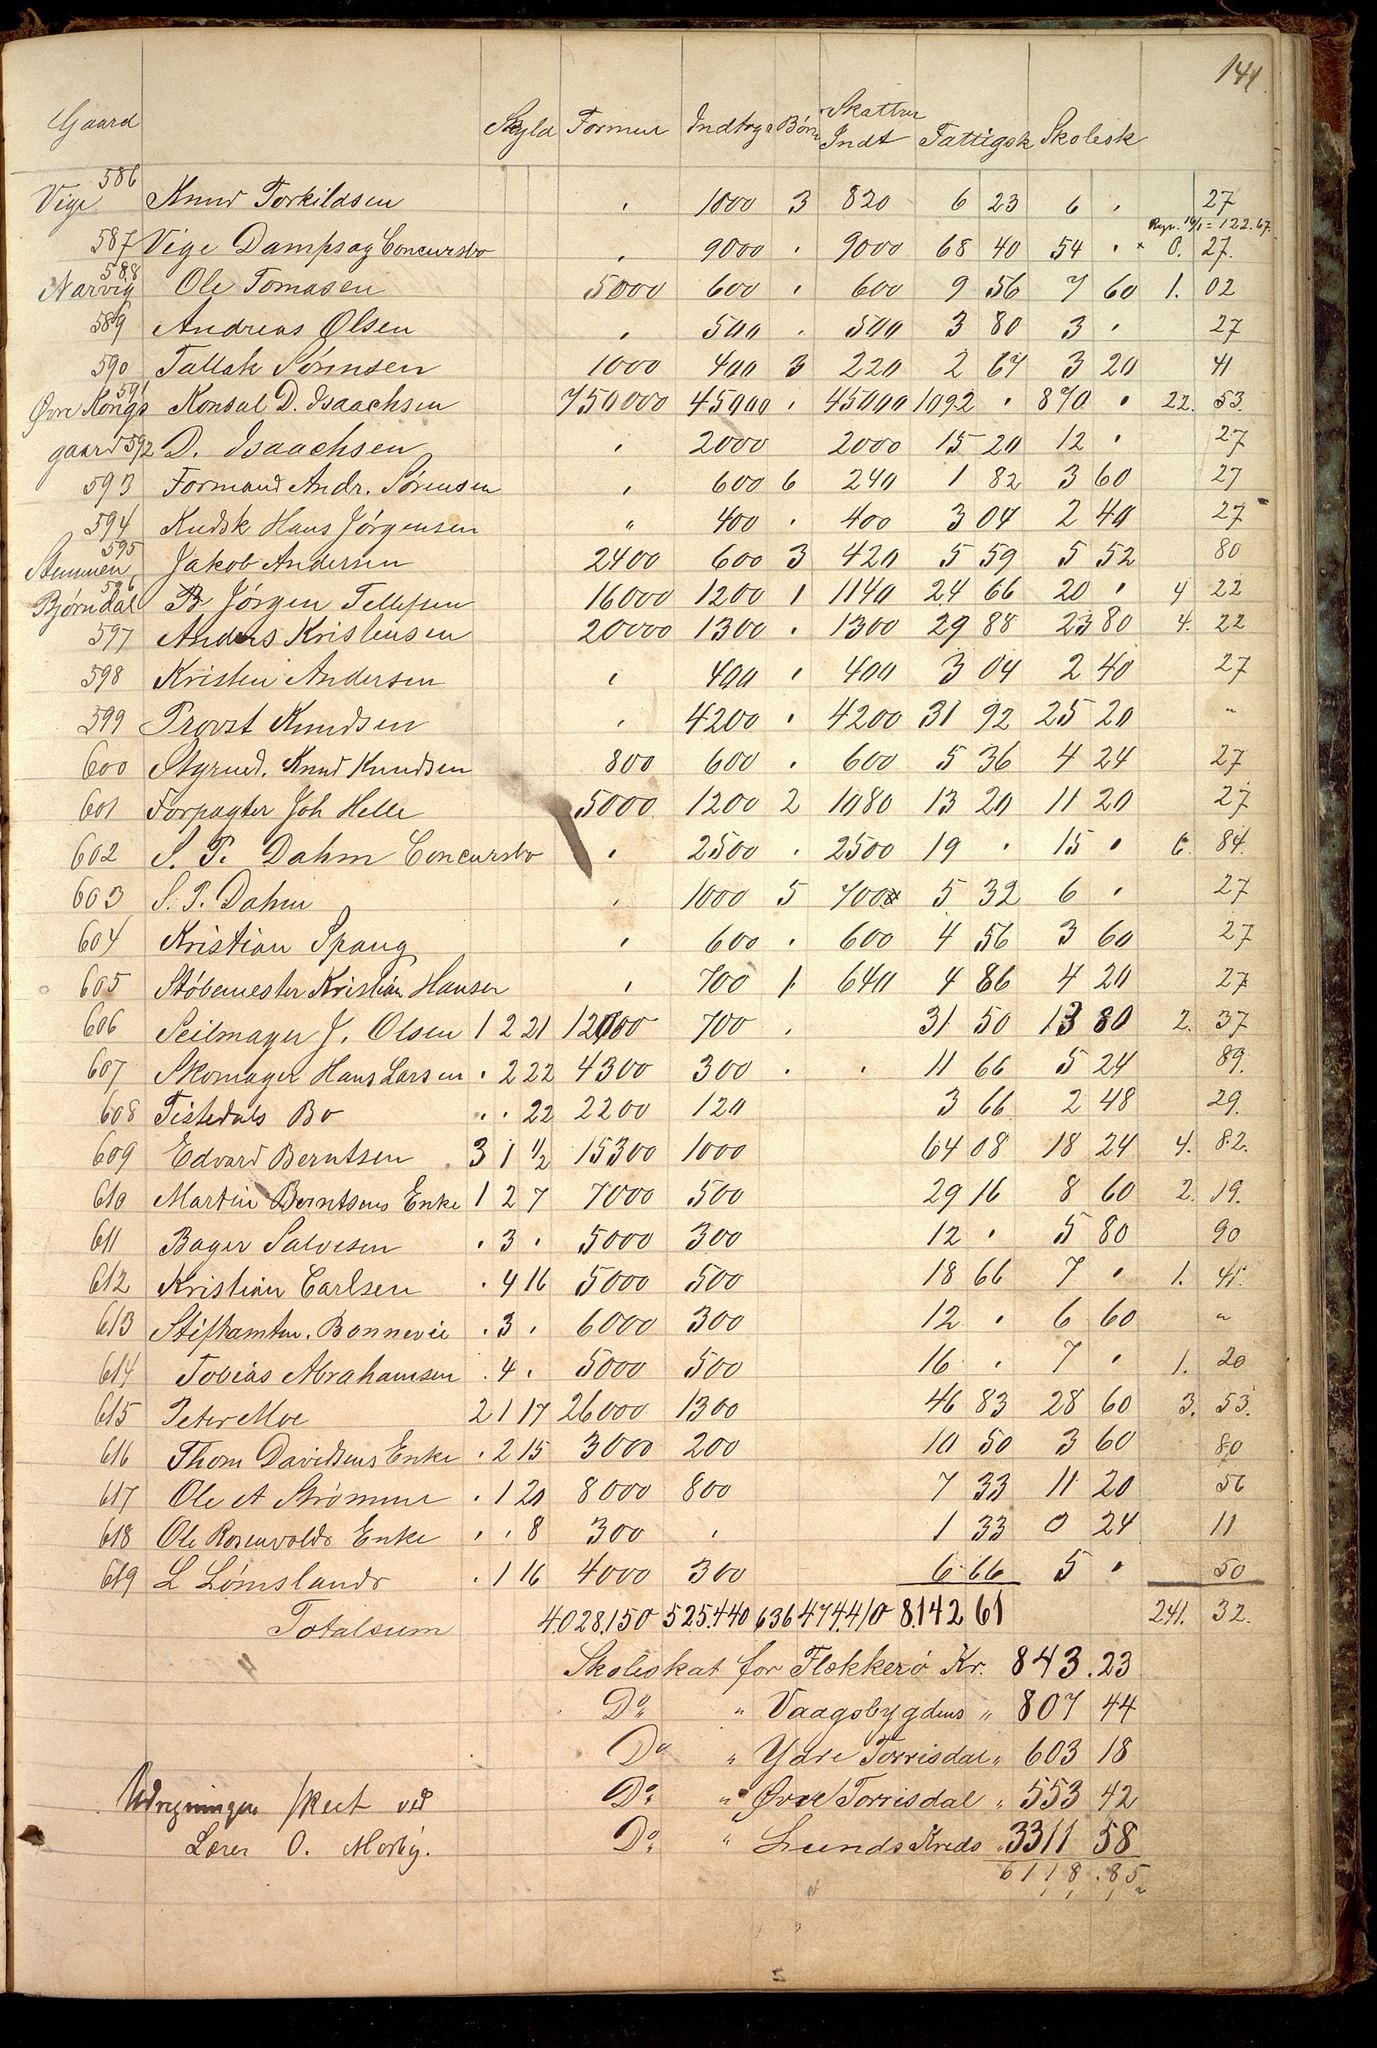 141
Gaard Skyld Formue Indtægt Børn Skattbar Indt Fattigsk Skolesk
Vige 586 Knud Torkildsen " 1000 3 820 6 23 6 " 27
Ryp. 16/1 = 122.67
587 Vige Dampsag Concursbo " 9000 " 9000 68 40 54 " × 0. 27.
Narvig 588 Ole Tomasen 5000 600 " 600 9 56 7 60 1. 02
589 Andreas Olsen " 500 " 500 3 80 3 " 27
590 Tallak Sørensen 1000 400 3 220 2 67 3 20 41
Øvre Kongs 591 Konsul D. Isaachsen 750000 45000 " 45000 1092 " 870 " 22. 53.
gaard 592 D. Isaachsen " 2000 2000 15 20 12 " 27
593 Formand Andr. Sørensen " 600 6 240 1 82 3 60 27
594 Kudsk Hans Jørgensen " 400 " 400 3 04 2 40 27
Stemmen 595 Jakob Andersen 2400 600 3 420 5 59 5 52 80
Bjørndal 596 B Jørgen Tellefsen 16000 1200 1 1140 24 66 20 " 4 22
597 Anders Kristensen 20000 1300 " 1300 29 88 23 80 4. 22
598 Kristen Andersen " 400 " 400 3 04 2 40 27
599 Provst Knudsen " 4200 " 4200 31 92 25 20 "
600 Styrmd. Knud Knudsen 800 600 " 600 5 36 4 24 27
601 Forpagter Joh Helle 5000 1200 2 1080 13 20 11 20 27
602 S. P. Dahm Concursbo " 2500 " 2500 19 " 15 " 6. 84.
603 S. P. Dahm " 1000 5 700 5 32 6 " 27
604 Kristian Spang " 600 " 600 4 56 3 60 27
605 Støbemester Kristian Hansen " 700 1 640 4 86 4 20 27
606 Seilmager J. Olsen 1 2 21 12000 700 " 31 50 13 80 2. 37
607 Skomager Hans Larsen " 2 22 4300 300 " " 11 66 5 24 89.
608 Tistedals Bo " " 22 2200 120 3 66 2 48 29.
609 Edvard Berntsen 3 1 1/2 15300 1000 64 08 18 24 4. 82.
610 Martin Berntsens Enke 1 2 7 7000 500 29 16 8 60 2. 19.
611 Bager Salvesen " 3 " 5000 300 12 " 5 80 90
612 Kristian Carlsen " 4 16 5000 500 18 66 7 " 1. 45.
613 Stiftamtm. Bonnevie " 3 " 6000 300 12 " 6 60 "
614 Tobias Abrahamsen " 4 " 5000 500 16 " 7 " 1. 20
615 Peter Moe 2 1 17 26000 1300 46 83 28 60 3. 53.
616 Thom Davidsens Enke " 2 15 3000 200 10 50 3 60 80
617 Ole A Strømme " 1 20 8000 800 7 33 11 20 56
618 Ole Rosenvolds Enke " " 8 300 " 1 33 0 24 11
619 L Lømslands " 1 16 4000 300 6 66 5 " 50
Totalsum 4.028.150 525.440 636 474.410 8.142 61 241. 32.
Skoleskat for Flekkerø Kr. 843.23
Do " Vaagsbygdens " 807 44
Do " Ydre Torrisdal " 603 18
Do " Øvre Torrisdal " 553 42
Do " Lunds Kreds " 3311 58
6118.85
Udregningen skeet ved
Lærer O. Mosby.